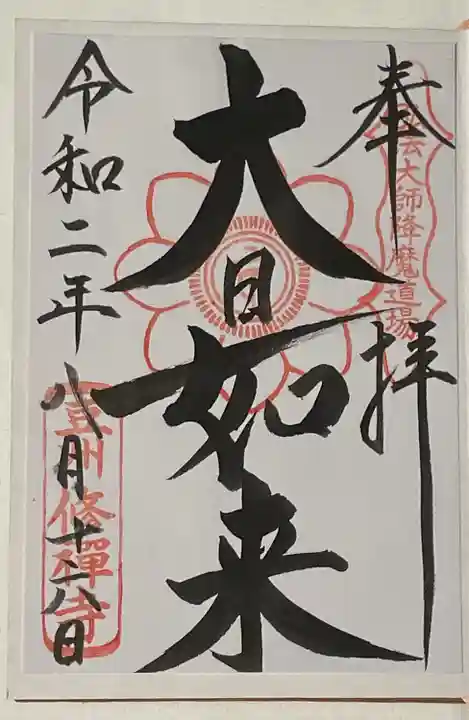 奉拝
弘法大師降魔道場
大日如来
令和二年八月十八日
豆州修禅寺